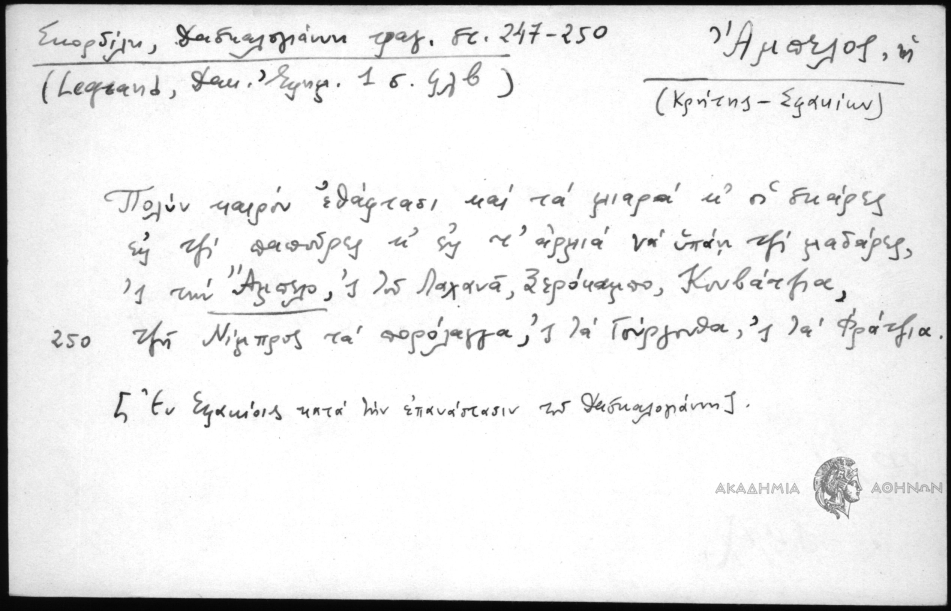 Σκορδίλη, Δασκαλογιάννη τραγ. στ. 247-250
(Legrand, Δακ. Ἐφημ. 1 σ. 4λβ)
Ἄμπελος, ἡ
(Κρήτης - Σφακίων)
Πολύν καιρόν ἐθάφτασι καί τά μιαρά κ' οἱ σκάρες
εἰς τζί παπούρες κ' εἰς τ' ἀρμιά νά ὑπάῃ τζί μαδάρες,
'ς τήν Ἄμπελο, 'ς τοῦ Λαχανᾶ, Ξερόκαμπο, Κουβάτζια,
250 τζῆ Νίμπρος τά πορόλαγγα, 'ς τά Γούργουθα, 'ς τά Φράτζια.
[Ἐν Σφακίοις κατά τήν ἐπανάστασιν τοῦ Δασκαλογιάννη].
ΑΚΑΔΗΜΙΑ ΑΘΗΝΩΝ